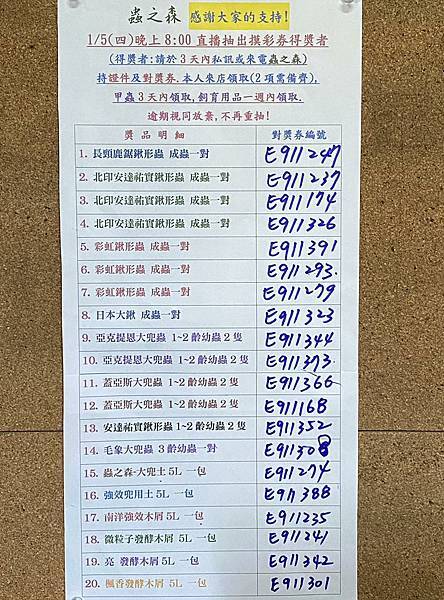 蟲之森 感謝大家的支持!
1/5(四)晚上 8:00 直播抽出摸彩券得獎者
(得獎者:請於 3 天內私訊或來電蟲之森)
持證件及對獎券.本人來店領取(2 項需備齊).
甲蟲 3 天內領取,飼育用品一週內領取.
逾期視同放棄,不再重抽!
獎品明細 對獎券編號
1. 長頸鹿鋸鍬形蟲 成蟲一對 E911247
2. 北印安達祐實鍬形蟲 成蟲一對 E911237
3. 北印安達祐實鍬形蟲 成蟲一對 E911174
4. 北印安達祐實鍬形蟲 成蟲一對 E911326
5. 彩虹鍬形蟲 成蟲一對 E911391
6. 彩虹鍬形蟲 成蟲一對 E911293
7. 彩虹鍬形蟲 成蟲一對 E911279
8. 日本大鍬 成蟲一對 E911323
9. 亞克提恩大兜蟲 1~2 齡幼蟲 2 隻 E911344
10. 亞克提恩大兜蟲 1~2 齡幼蟲 2 隻 E911373
11. 蓋亞斯大兜蟲 1~2 齡幼蟲 2 隻 E911366
12. 蓋亞斯大兜蟲 1~2 齡幼蟲 2 隻 E911168
13. 安達祐實鍬形蟲 1~2 齡幼蟲 2 隻 E911352
14. 毛象大兜蟲 3 齡幼蟲一對 E911308
15. 蟲之森-大兜土 5L 一包 E911274
16. 強效兜用土 5L 一包 E911388
17. 南洋強效木屑 5L 一包 E911235
18. 微粒子發酵木屑 5L 一包 E911241
19. 亮 發酵木屑 5L 一包 E911342
20. 楓香發酵木屑 5L 一包 E911301